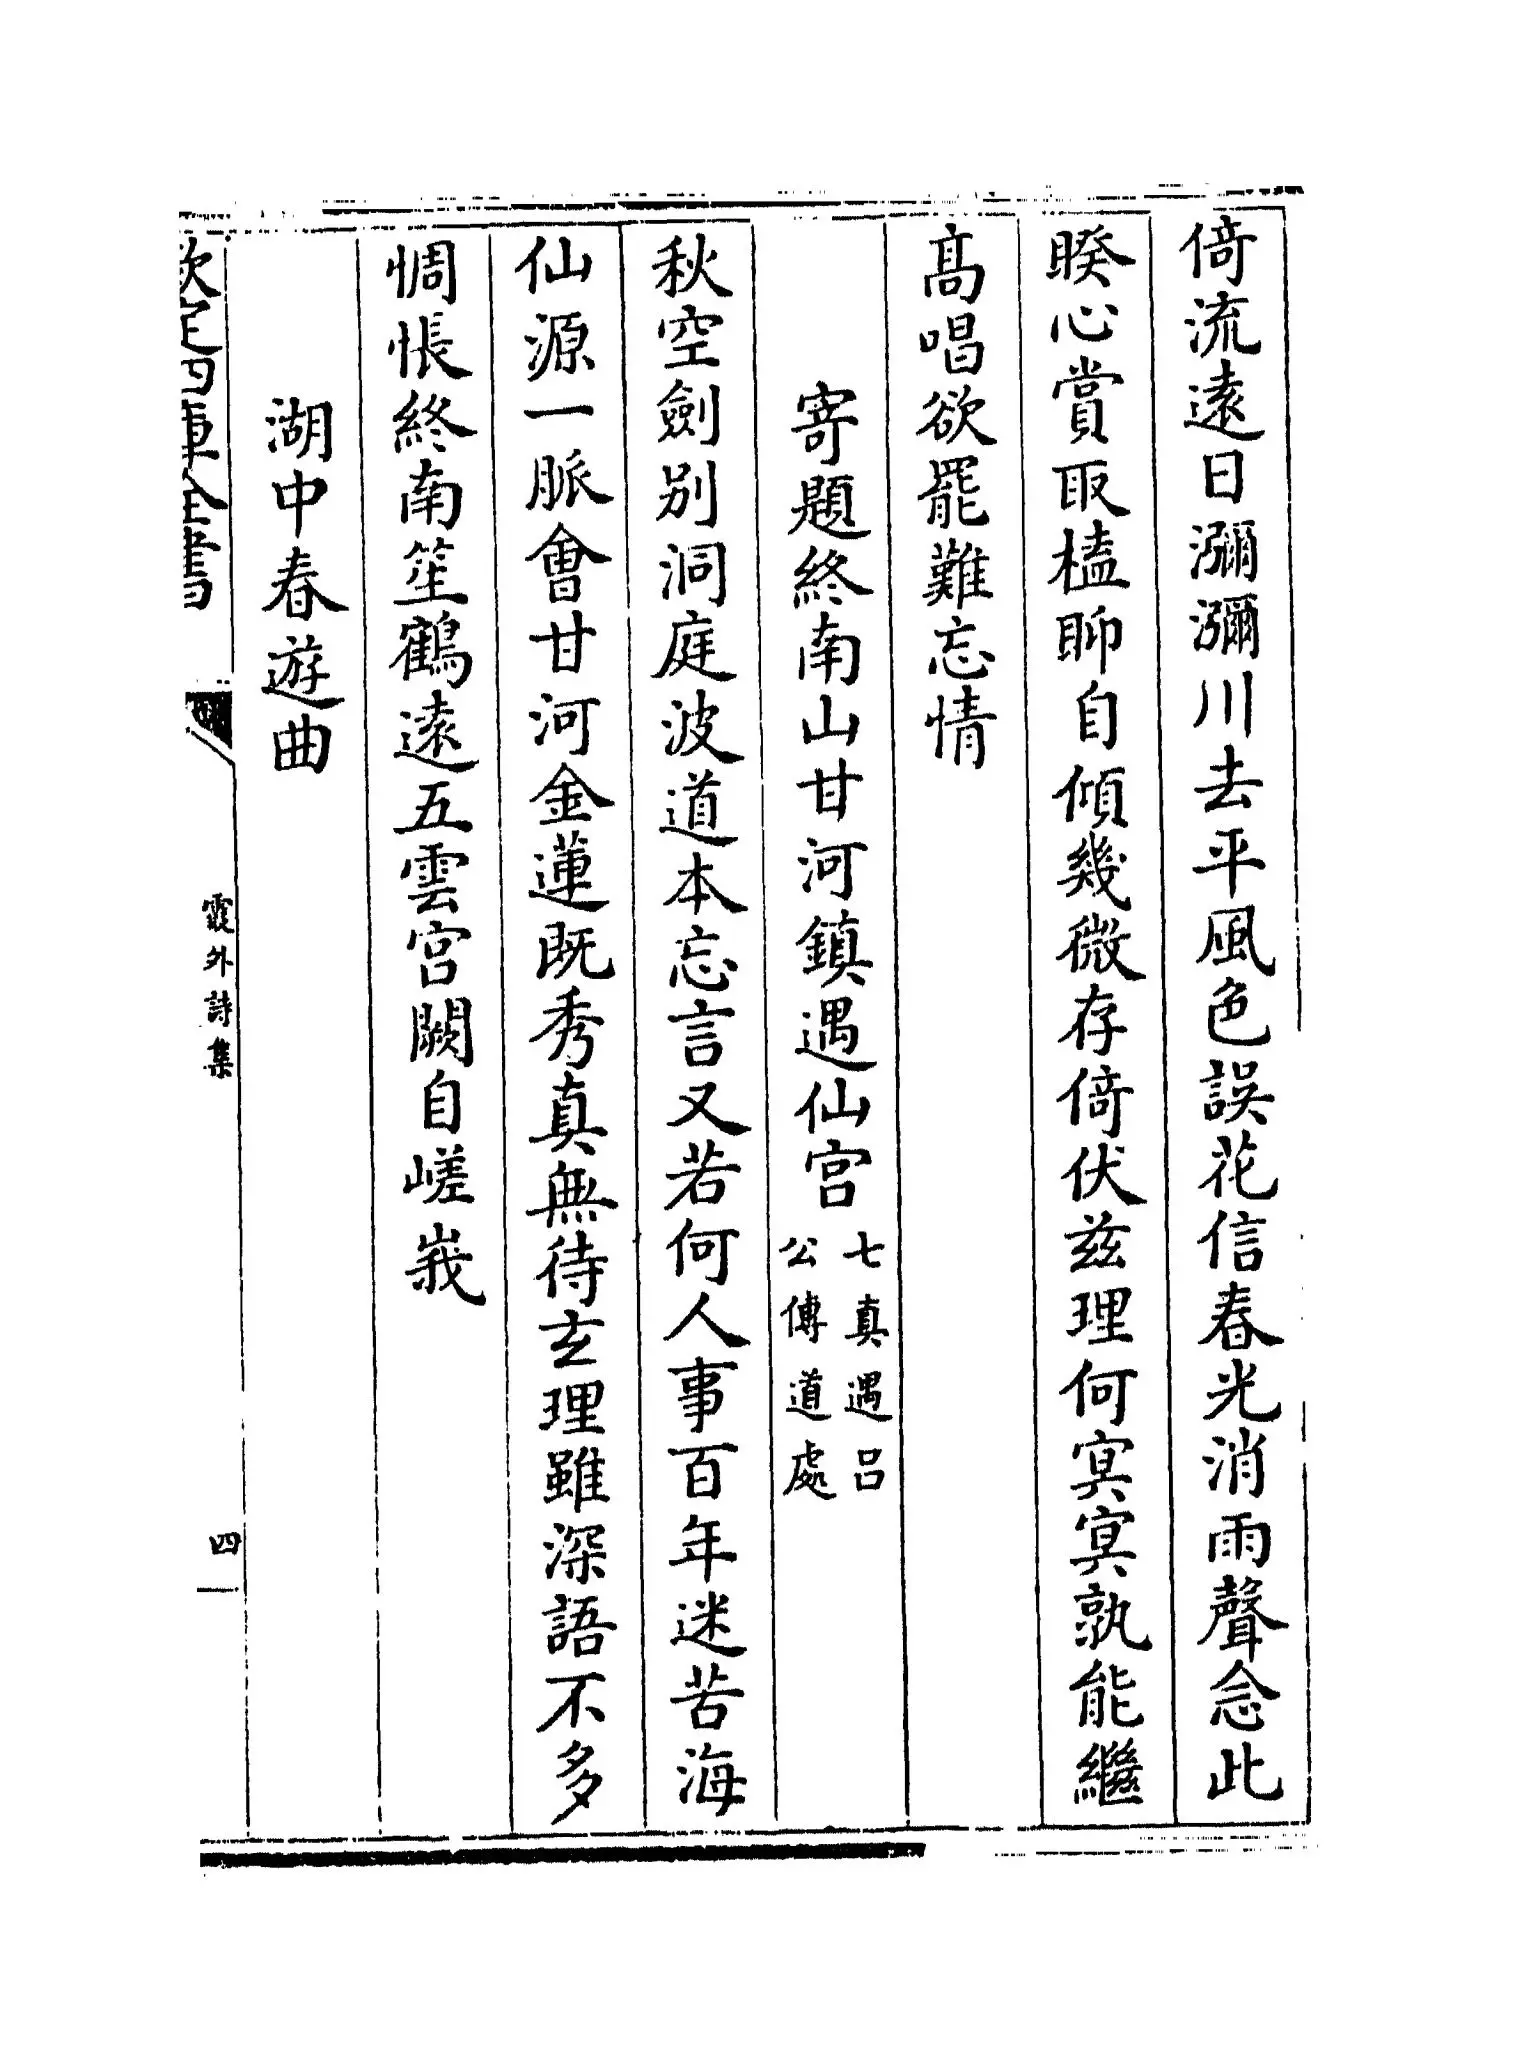 倚流遠日瀰瀰川去平風色誤花信春光消雨聲念此
睽心賞取榼聊自傾幾微存倚伏兹理何㝠㝠孰能繼
髙唱欲罷難忘情
寄題終南山甘河鎮遇仙宫七真遇吕
公傳道處
秋空劍别洞庭波道本忘言又若何人事百年迷苦海
仙源一脈會甘河金蓮既秀真無待玄理雖深語不多
惆悵終南笙鶴遠五雲宫闕自嵯峩
湖中春遊曲
欽定四庫全書
霞外詩集
四